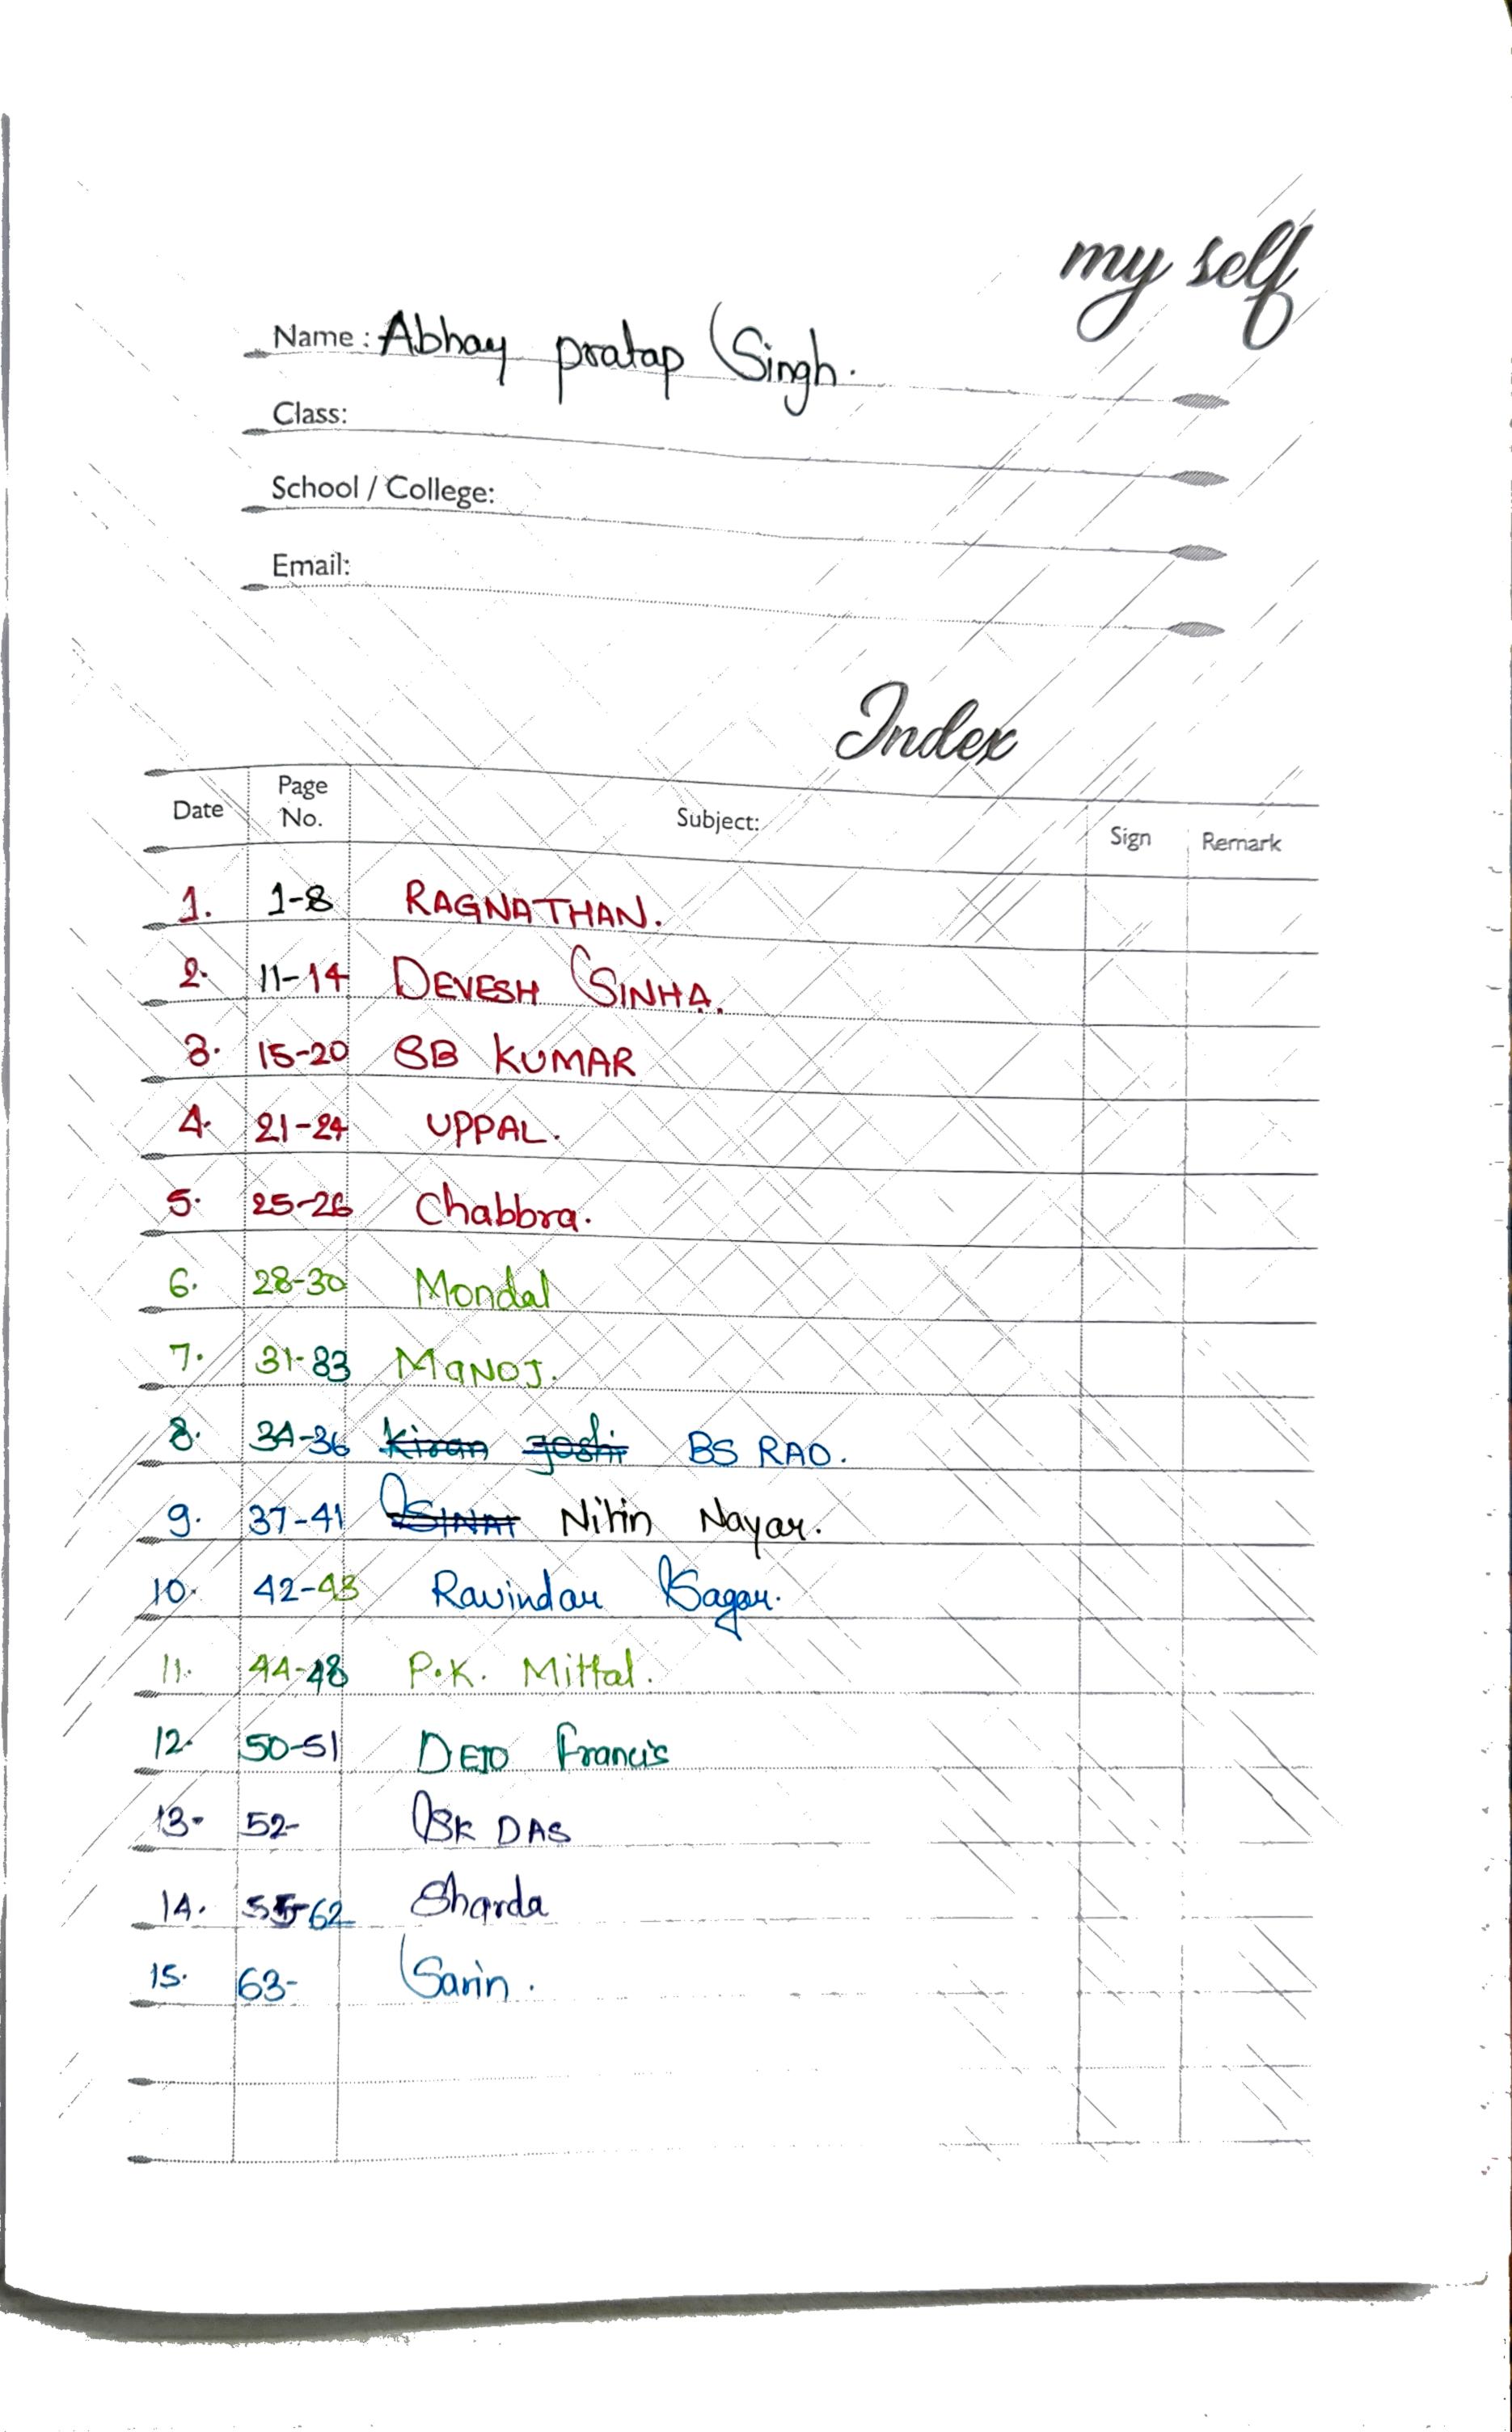 my self
Name : Abhay pratap Singh.
Class:
School / College:
Email:
Index
Date Page No. Subject: Sign Remark
1. 1-8 RAGNATHAN.
2. 11-14 DEVESH SINHA.
3. 15-20 SB KUMAR
4. 21-24 UPPAL.
5. 25-26 Chabbra.
6. 28-30 Mondal
7. 31-33 MANOJ.
8. 34-36 Kiran Joshi BS RAO.
9. 37-41 Nitin Nayar.
10. 42-43 Ravindar Sagar.
11. 44-48 P.K. Mittal.
12. 50-51 DEJO Francis
13. 52- SK DAS
14. 55-62 Sharda
15. 63- Sarin.